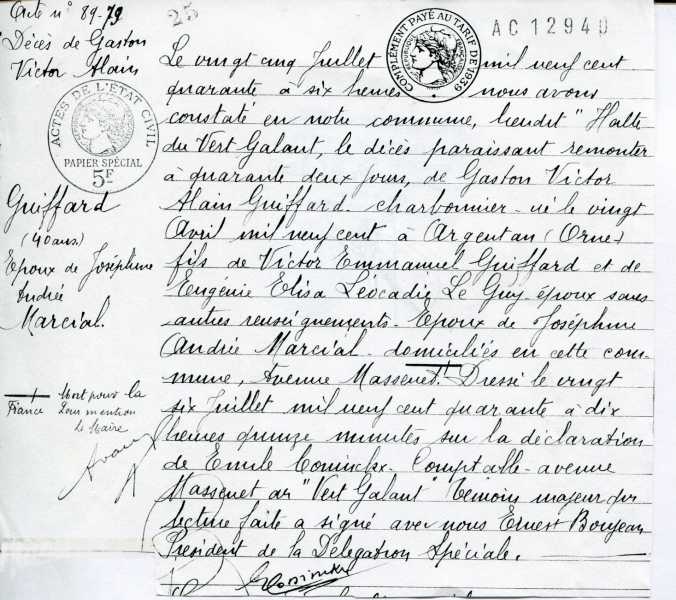 Acte n° 89-79
25
AC 12940
Décès de Gaston
Victor Alain
Guiffard
(40 ans)
Epoux de Joséphine
Andrée
Marcial.
Mort pour la
France
Pour mention
le Maire
ACTES DE L'ÉTAT CIVIL
PAPIER SPÉCIAL
5F
COMPLÉMENT PAYÉ AU TARIF DE 1939
RÉPUBLIQUE FRANÇAISE
Le vingt cinq Juillet mil neuf cent
quarante à six heures nous avons
constaté en notre commune, lieudit "Halte
du Vert Galant, le décès paraissant remonter
à quarante deux jours, de Gaston Victor
Alain Guiffard. charbonnier - né le vingt
Avril mil neuf cent à Argentan (Orne)
fils de Victor Emmanuel Guiffard et de
Eugénie Elisa Léocadie Le Guy. époux sans
autres renseignements - Epoux de Joséphine
Andrée Marcial - domiciliés en cette com-
mune, Avenue Massenet. Dressé le vingt
six Juillet mil neuf cent quarante à dix
heures quinze minutes sur la déclaration
de Emile Cominckx - Comptable - avenue
Massenet au "Vert Galant" Témoin majeur qui
lecture faite a signé avec nous Ernest Boujean
President de la Délégation Spéciale.
Cominckx